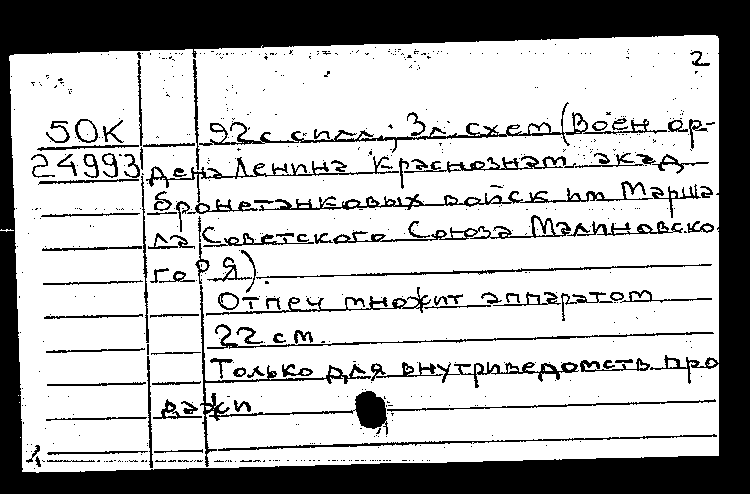 2
50К 92 с илл.; 3л. схем (Воен ор-
24993 дена Ленина краснознам акад
бронетанковых войск им Марша
ла Советского Союза Малиновско
го Р Я).
Отпеч множит аппаратом
22 см.
Только для внутриведомств. про
дажи